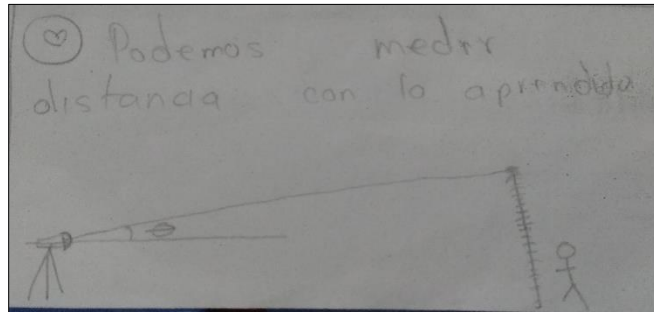 Podemos medir
distancia con lo aprendido
θ